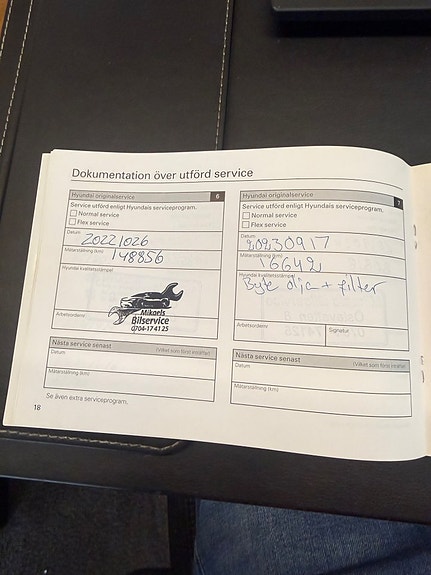 Dokumentation över utförd service
Hyundai originalservice 6
Service utförd enligt Hyundais serviceprogram.
Normal service
Flex service
Datum
20221026
Mätarställning (km)
148856
Hyundai kvalitetsstämpel
Mikaels
Bilservice
0704-17 41 25
Arbetsordernr
Nästa service senast (Vilket som först inträffar)
Datum
Mätarställning (km)
Se även extra serviceprogram.
18
Hyundai originalservice 7
Service utförd enligt Hyundais serviceprogram.
Normal service
Flex service
Datum
20230917
Mätarställning (km)
16642
Hyundai kvalitetsstämpel
Byte olja + filter
Arbetsordernr Signatur
Nästa service senast (Vilket som först inträffar)
Datum
Mätarställning (km)